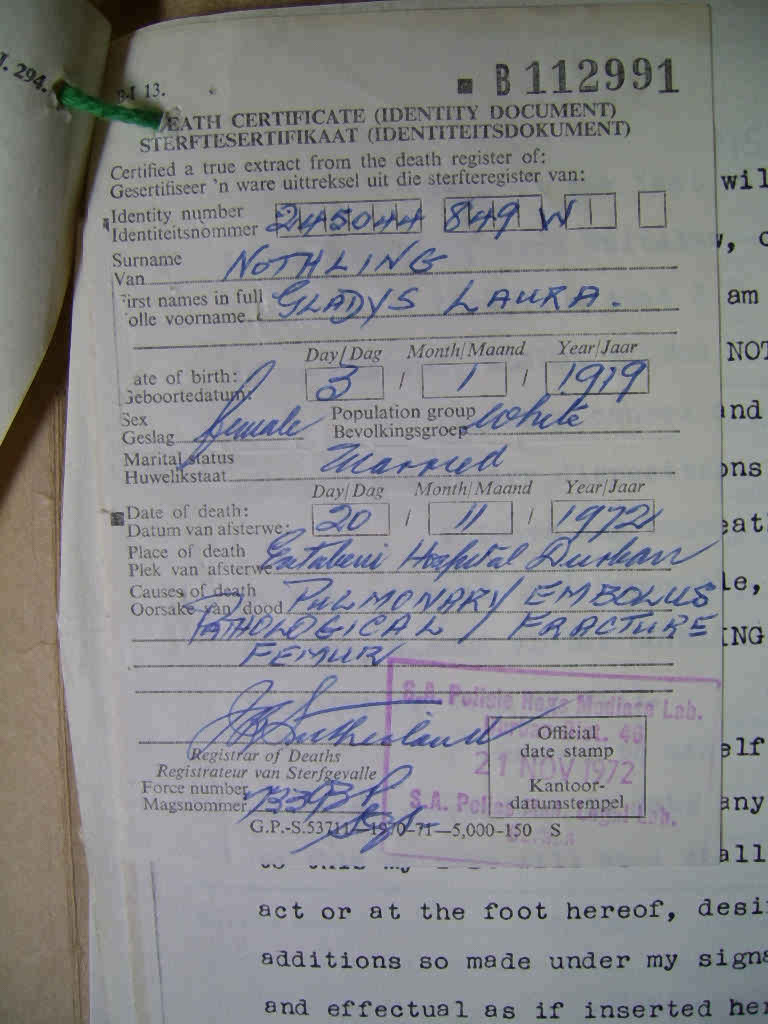 J. 294.
B-I 13.
B 112991
EATH CERTIFICATE (IDENTITY DOCUMENT)
STERFTESERTIFIKAAT (IDENTITEITSDOKUMENT)
Certified a true extract from the death register of:
Gesertifiseer 'n ware uittreksel uit die sterfteregister van:
Identity number
Identiteitsnommer 245044 849 W
Surname
Van NOTHLING
First names in full
olle voorname GLADYS LAURA.
Day/Dag Month/Maand Year/Jaar
ate of birth:
Geboortedatum: 3 / 1 / 1919
Sex
Geslag female Population group
Bevolkingsgroep white
Marital status
Huwelikstaat Married
Day/Dag Month/Maand Year/Jaar
Date of death:
Datum van afsterwe: 20 / 11 / 1972
Place of death
Plek van afsterwe Entabeni Hospital Durban
Causes of death
Oorsake van dood PULMONARY EMBOLUS
PATHOLOGICAL / FRACTURE
FEMUR
S.A. Polisie Lab.
Sutherland
Registrar of Deaths
Registrateur van Sterfgevalle
Official
date stamp
21 NOV 1972
Force number
Magsnommer
Kantoor-
datumstempel
S.A. Lab.
G.P.-S.53711—1970-71—5,000-150 S
wil
am
NOT
and
ons
eat
le,
ING
elf
any
all
act or at the foot hereof, desi
additions so made under my signa
and effectual as if inserted her